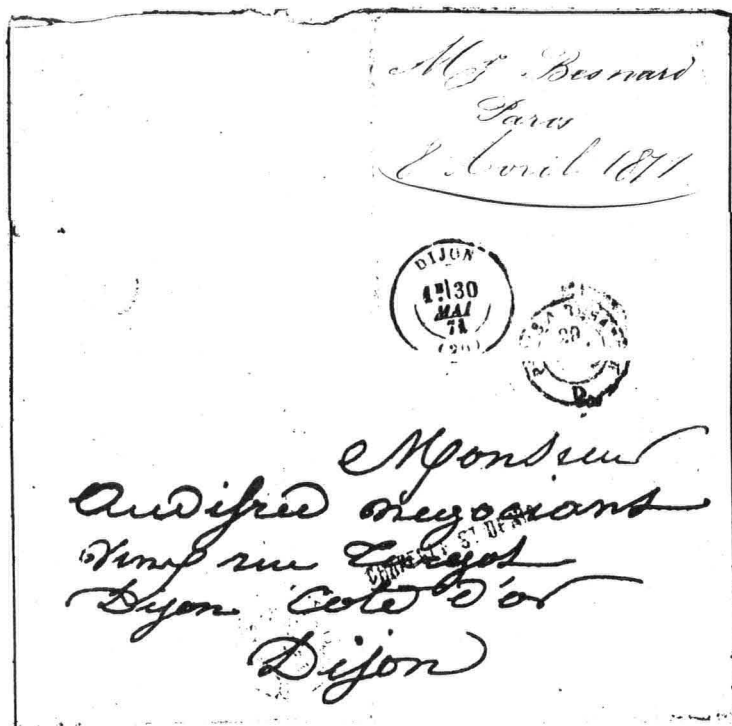 Mr Besnard
Paris
8 Avril 1871
DIJON
1E 30
MAI
71
(20)
20
Monsieur
Audifred negociant
rue Turgot
Dijon Cote d'or
Dijon